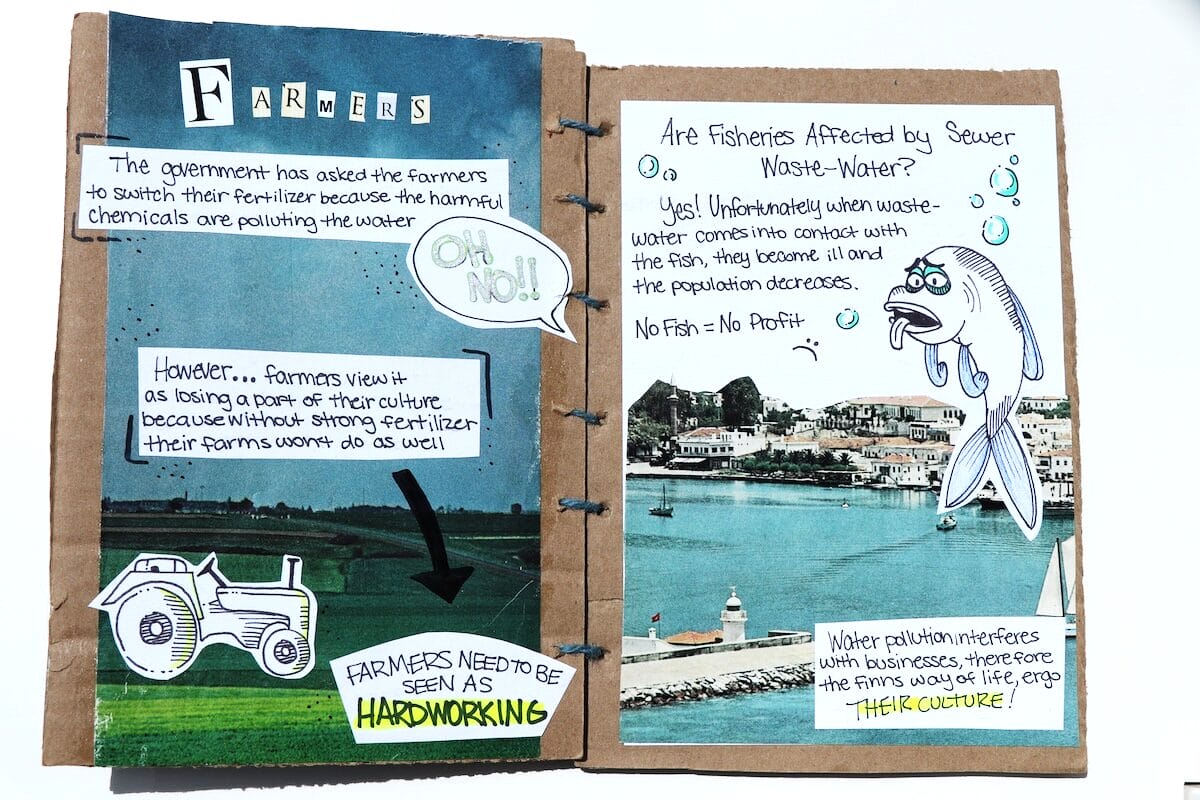 FARMERS
The government has asked the farmers
to switch their fertilizer because the harmful
chemicals are polluting the water
OH
NO!!
However... farmers view it
as losing a part of their culture
because without strong fertilizer
their farms won't do as well
FARMERS NEED TO BE
SEEN AS
HARDWORKING
Are Fisheries Affected by Sewer
Waste-Water?
Yes! Unfortunately when waste-
water comes into contact with
the fish, they become ill and
the population decreases.
No Fish = No Profit
Water pollution interferes
with businesses, therefore
the Finns way of life, ergo
THEIR CULTURE!